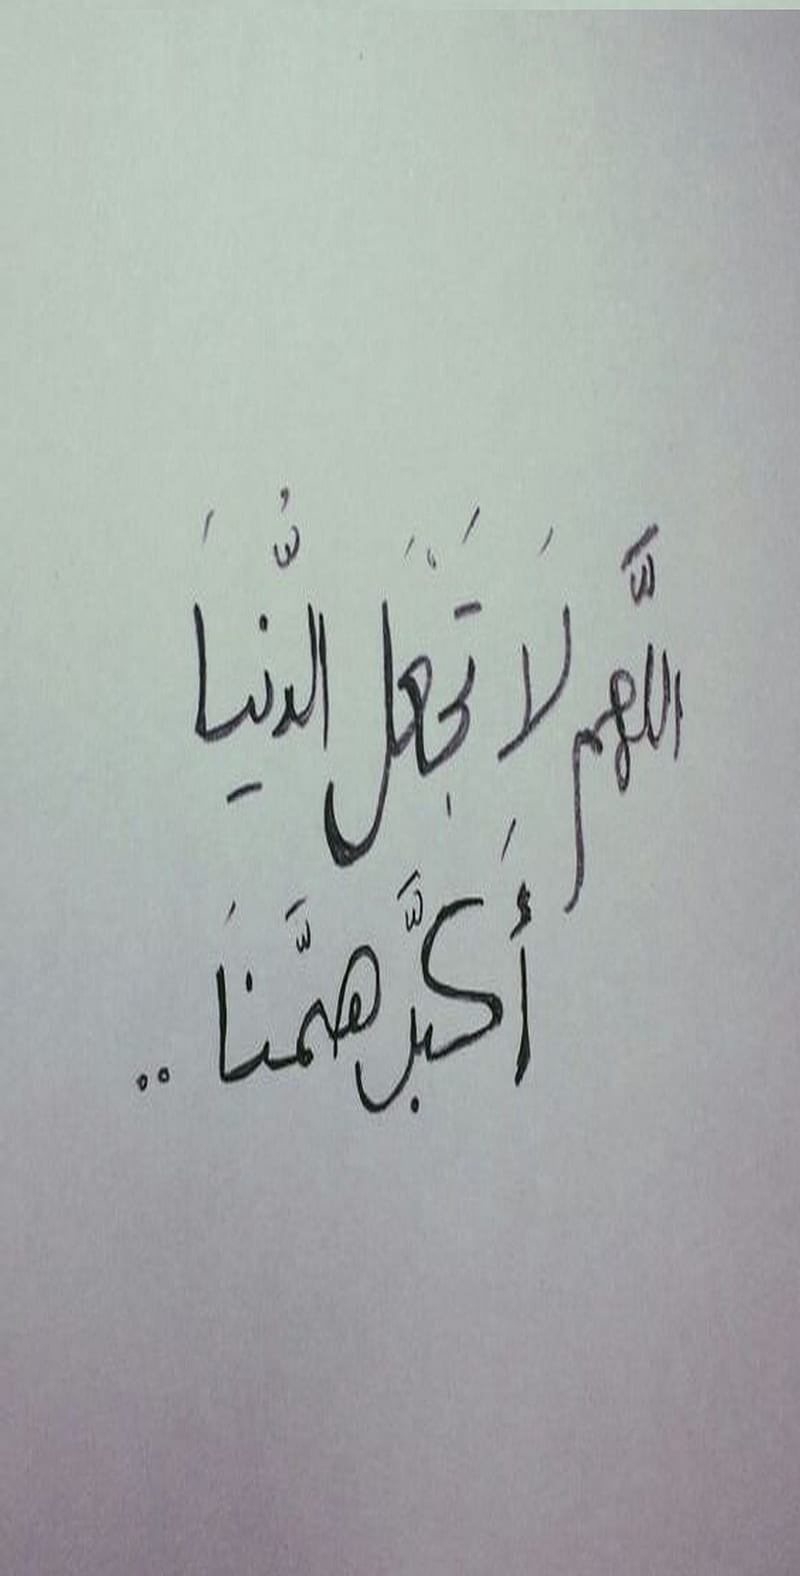 اللَّهم لَا تَجْعَل الدُّنيَا
أَكبَّر همَّنَا ..